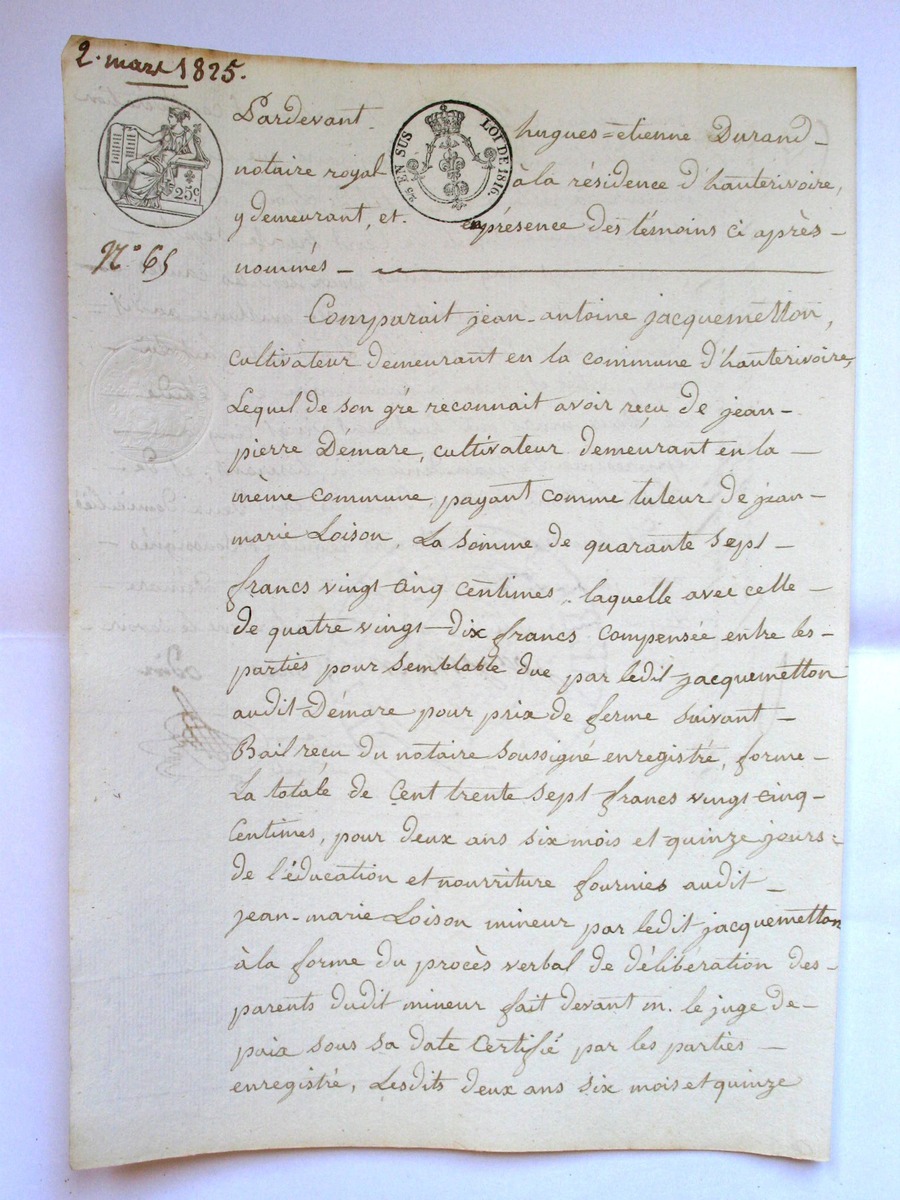 2. mars 1825.
25 EN SUS LOI DE 1816.
25c.
N.° 65
Pardevant hugues=etienne Durand
notaire royal à la résidence d'hauterivoire,
y demeurant, et en présence des témoins ci après-
nommés —
Comparait jean-antoine jacquemetton,
cultivateur demeurant en la commune d'hauterivoire,
Lequel de son gré reconnait avoir reçu de jean-
pierre Démare, cultivateur demeurant en la —
même commune, payant comme tuteur de jean-
marie Loison, La somme de quarante sept —
francs vingt cinq centimes. laquelle avec celle —
de quatre vingt-dix francs compensée entre les-
parties pour semblable due par ledit jacquemetton
audit Démare pour prix de ferme suivant —
Bail reçu du notaire soussigné enregistré, forme —
La totale de Cent trente sept francs vingt-cinq-
Centimes, pour deux ans six mois et quinze jours:
de l'éducation et nourriture fournies audit —
jean-marie Loison mineur par ledit jacquemetton
à la forme du procès verbal de délibération des-
parents dudit mineur fait devant m. le juge de-
paix sous sa date Certifié par les parties —
enregistré, Lesdits deux ans six mois et quinze